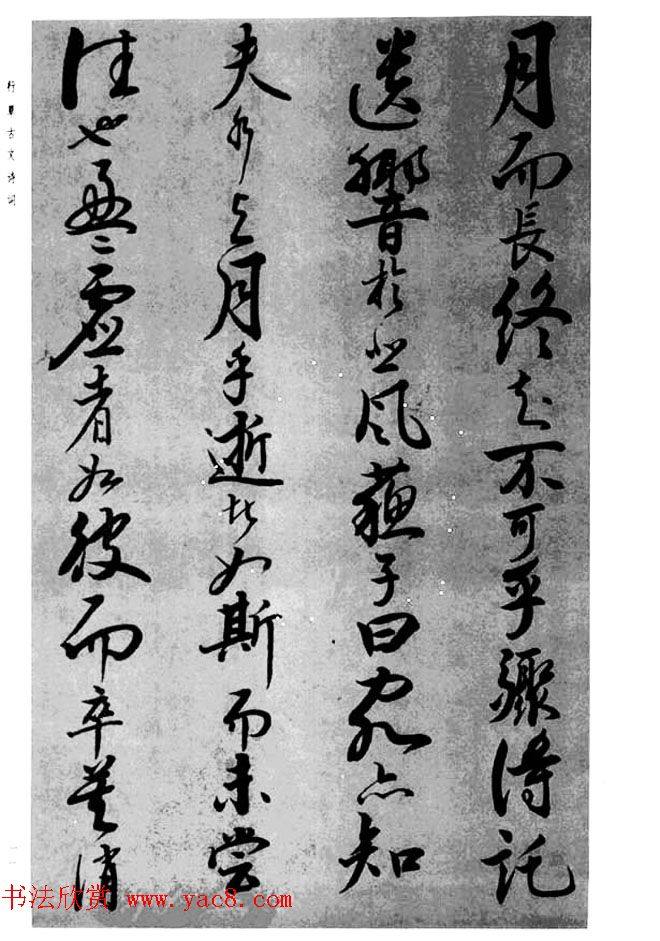 月而長終知不可乎驟得託
遺響於悲風蘇子曰客亦知
夫水与月乎逝者如斯而未嘗
往也盈〻虛者如彼而卒莫消
行草古文诗词
书法欣赏 www.yac8.com